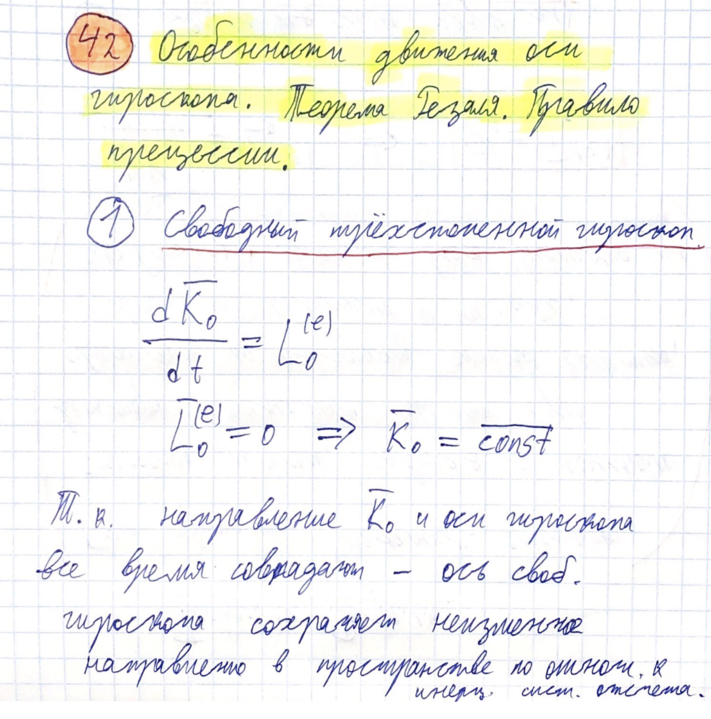 42 Особенности движения оси
гироскопа. Теорема Резаля. Правило
прецессии.
1 Свободный трёхстепенной гироскоп.
dK̅₀/dt = L₀⁽ᵉ⁾
L̅₀⁽ᵉ⁾ = 0 ⇒ K̅₀ = c̅o̅n̅s̅t̅
Т.к. направление K̅₀ и оси гироскопа
все время совпадают – ось своб.
гироскопа сохраняет неизменное
направлено в пространстве по относ. к
инерц. сист. отсчета.